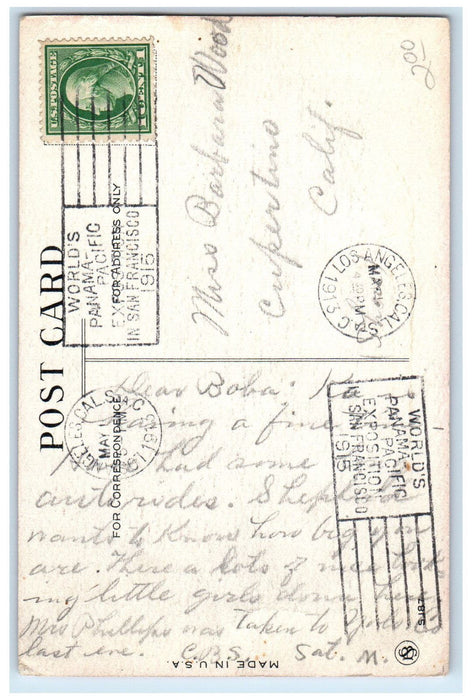 POST CARD
FOR ADDRESS ONLY
FOR CORRESPONDENCE
U.S. POSTAGE
1 CENT 1
WORLD'S
PANAMA-
PACIFIC
EXPOSITION
IN SAN FRANCISCO
1915
200
Miss Barbara Wood
Cupertino
Calif.
LOS ANGELES, CAL. S.C. 5 1915
MAY
LOS ANGELES, CAL. S.C. 5 1915
MAY
WORLD'S
PANAMA-
PACIFIC
EXPOSITION
IN SAN FRANCISCO
1915
5187
Dear Boba:
having a fine
have had some
auto rides. Shepherd
wants to know how big you
are. There a lots of nice look-
ing little girls down here
Mrs Phillips was taken to
last eve. C.B.S. Sat. M.
MADE IN U.S.A.